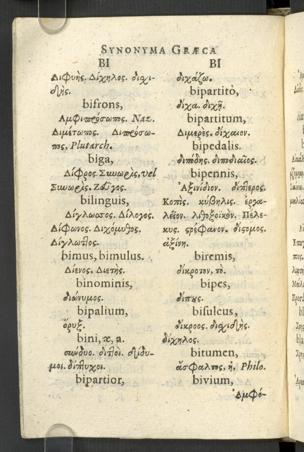 SYNONYMA GRÆCA
BI
Διφυής. Δίχηλος. διχι-
δής.
bifrons,
Ἀμφιπρόσωπος. Naz.
Διμέτωπος. Διπρόσω-
πος, Plutarch.
biga,
Δίφρος. Συνωρὶς, vel
Ξυνωρίς. Ζεῦγος.
bilinguis,
Δίγλωσσος. Δίλογος.
Δίφωνος. Διχόμυθος.
Δίγλωττος.
bimus, bimulus.
Δίενος. Διετής.
binominis,
διώνυμος.
bipalium,
ὄρυξ.
bini, æ, a.
σύνδυο. διττοί. δίδυ-
μοι. δίπτυχοι.
bipartior,
BI
διχάζω.
bipartitò,
δίχα. διχῆ.
bipartitum,
Διμερὲς. δίχαιον.
bipedalis.
διπόδης. διποδιαῖος.
bipennis,
Ἀξινίδιον. δίπτερος.
Κοπὶς. κύβηλις. ἐργα-
λεῖον. λιθοξοϊκόν. Πέλε-
κυς. τρύφανον. δίστομος.
ἀξίνη.
biremis,
δίκροτον, τό.
bipes,
δίπους.
bisulcus,
δίκροος. διχιδής.
δίχηλος.
bitumen,
ἄσφαλτος, ἡ. Philo.
bivium,
Ἀμφό-